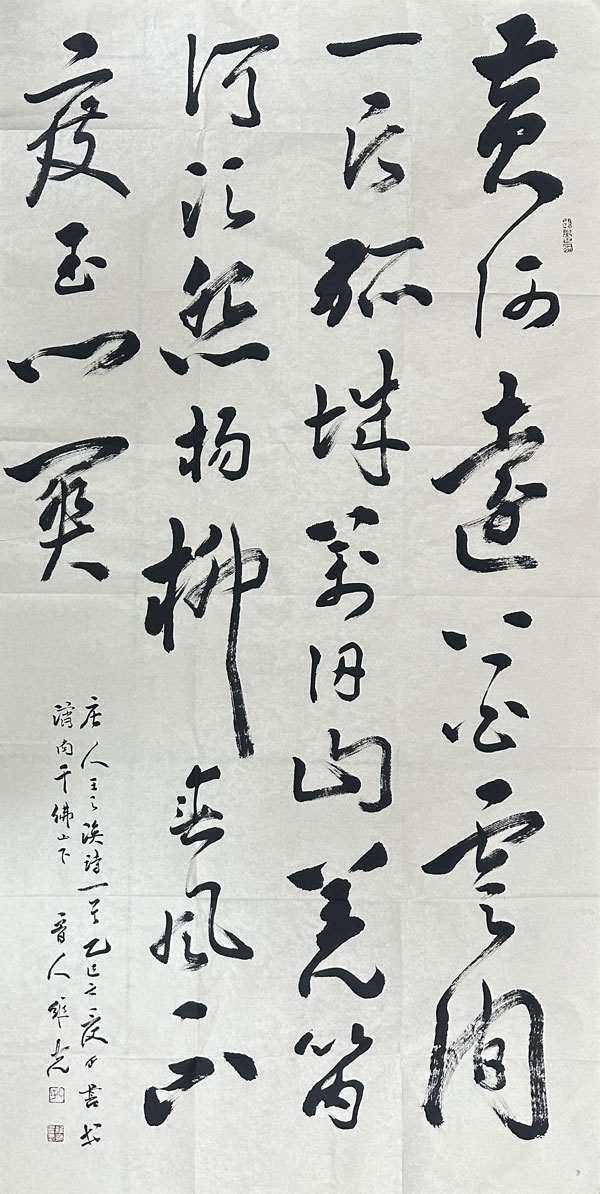 黄河远上白云间
一片孤城万仞山羌笛
何须怨杨柳春风不
度玉门关
唐人王之涣诗一首乙巳之夏月书于
济南千佛山下 晋人维光